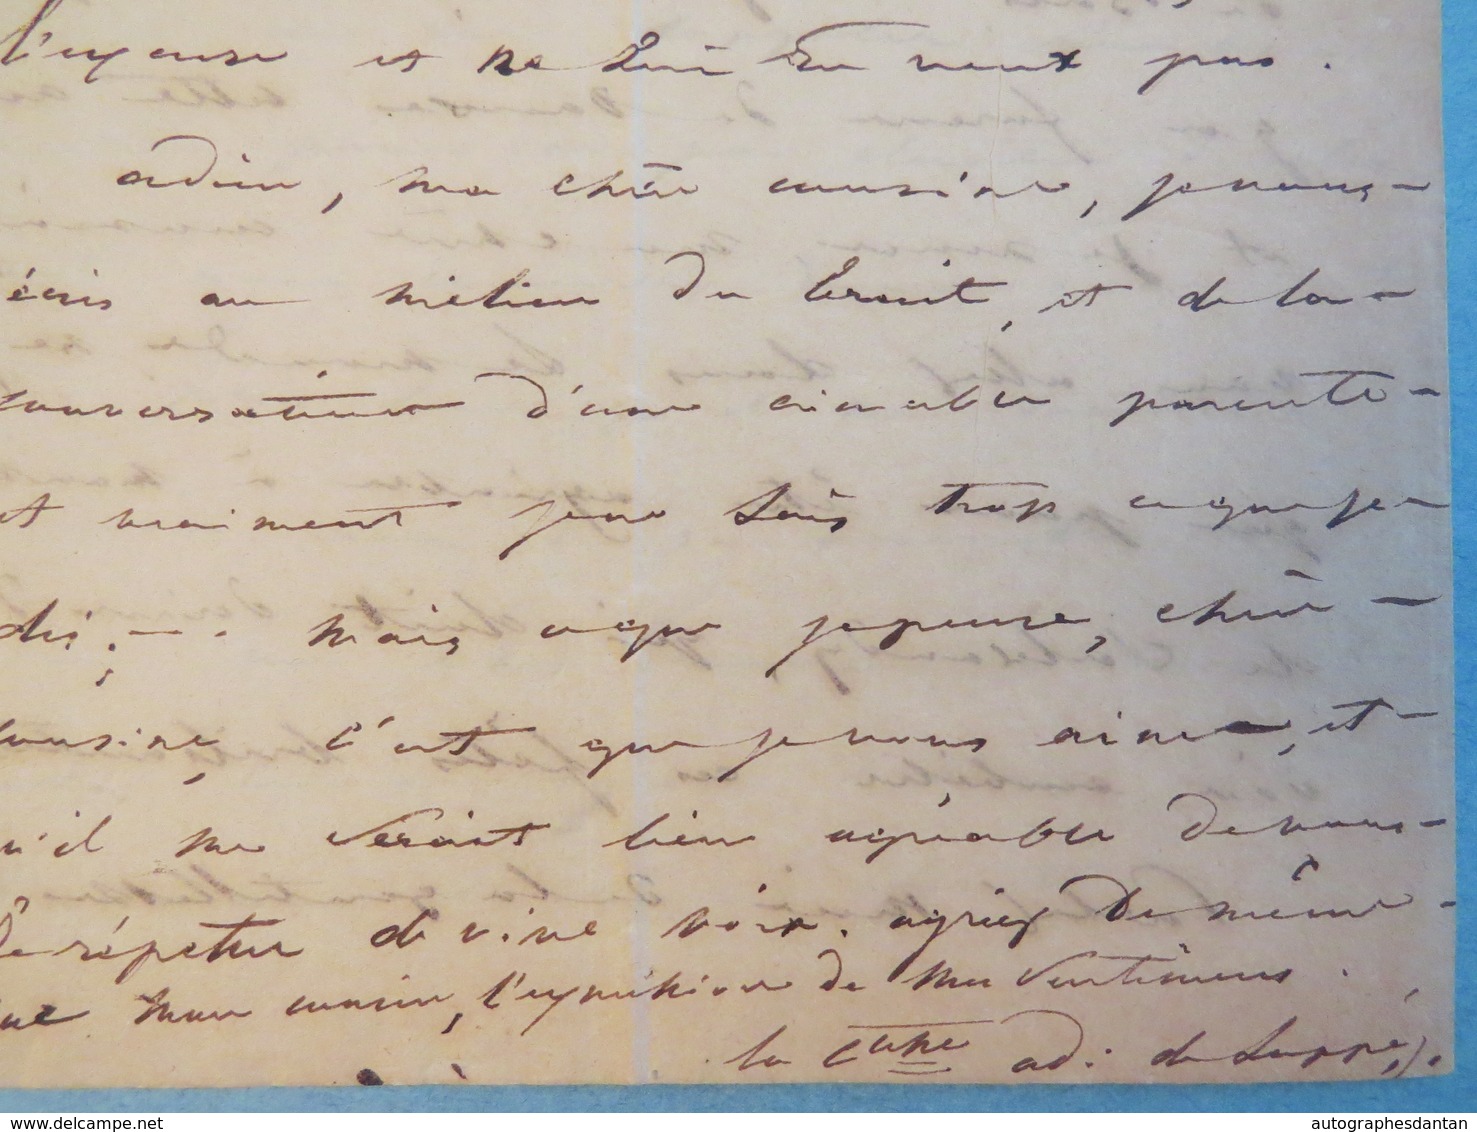 l'excuse et ne lui en veux pas.
adieu, ma chère cousine, je vous
écris au milieu du bruit, et de la
conversation d'une aimable parente
et vraiment je ne sais trop ce que je
dis; —. mais ce que je pense, chère
cousine, c'est que je vous aime, et
qu'il me seroit bien agréable de vous
le répéter de vive voix. agréez de même
que mon cousin, l'expression de mes sentimens.
la Ctesse ad: de
autographesdantan
www.delcampe.net
autographesdantan